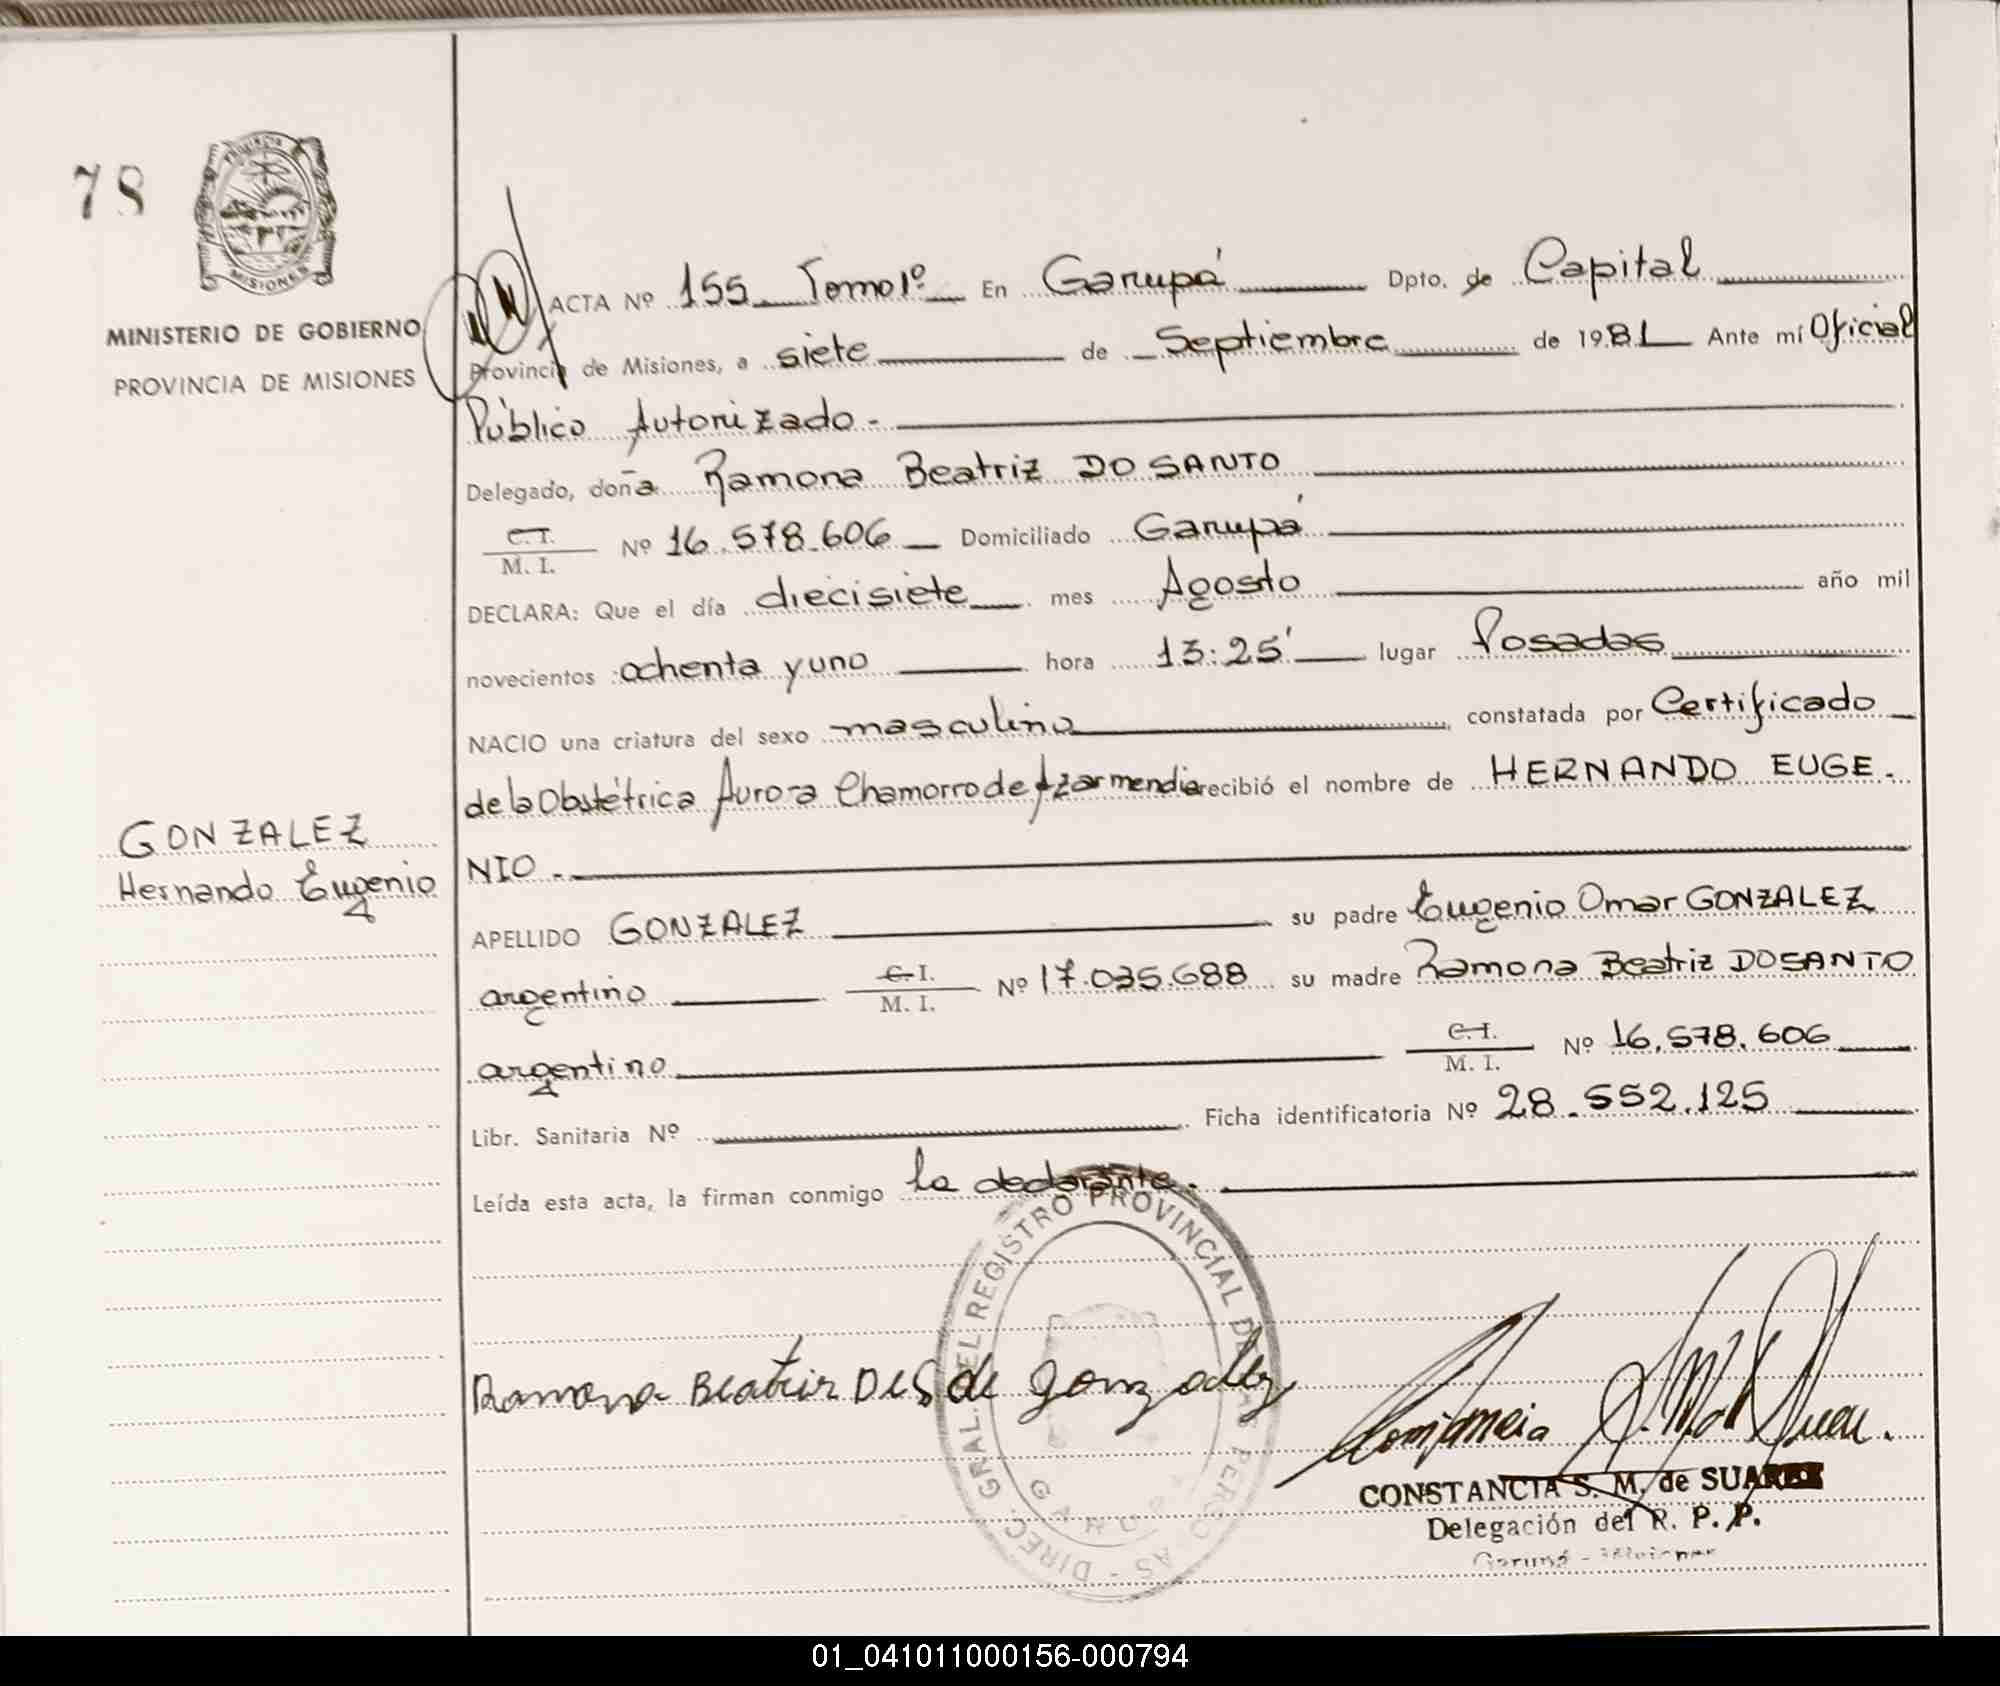 78
PROVINCIA
MISIONES
MINISTERIO DE GOBIERNO
PROVINCIA DE MISIONES
ACTA Nº 155 Tomo 1º En Garupá Dpto. de Capital
Provincia de Misiones, a siete de Septiembre de 1981 Ante mí Oficial
Público Autorizado.-
Delegado, doña Ramona Beatriz DO SANTO
C.I. / M. I. Nº 16.578.606 Domiciliado Garupá
DECLARA: Que el día diecisiete mes Agosto año mil
novecientos ochenta y uno hora 13:25' lugar Posadas
NACIO una criatura del sexo masculino, constatada por Certificado
de la Obstétrica Aurora Chamorro de Azarmendia recibió el nombre de HERNANDO EUGE-
GONZALEZ
Hernando Eugenio
NIO.-
APELLIDO GONZALEZ su padre Eugenio Omar GONZALEZ
argentino C.I. / M. I. Nº 17.035.688 su madre Ramona Beatriz DO SANTO
argentino C.I. / M. I. Nº 16.578.606
Libr. Sanitaria Nº Ficha identificatoria Nº 28.552.125
Leída esta acta, la firman conmigo la declarante.-
DIREC. GRAL. DEL REGISTRO PROVINCIAL DE LAS PERSONAS - GARUPA
Ramona Beatriz de Gonzalez
CONSTANCIA S. M. de SUAREZ
Delegación del R. P. P.
Garupá - Misiones
01_041011000156-000794